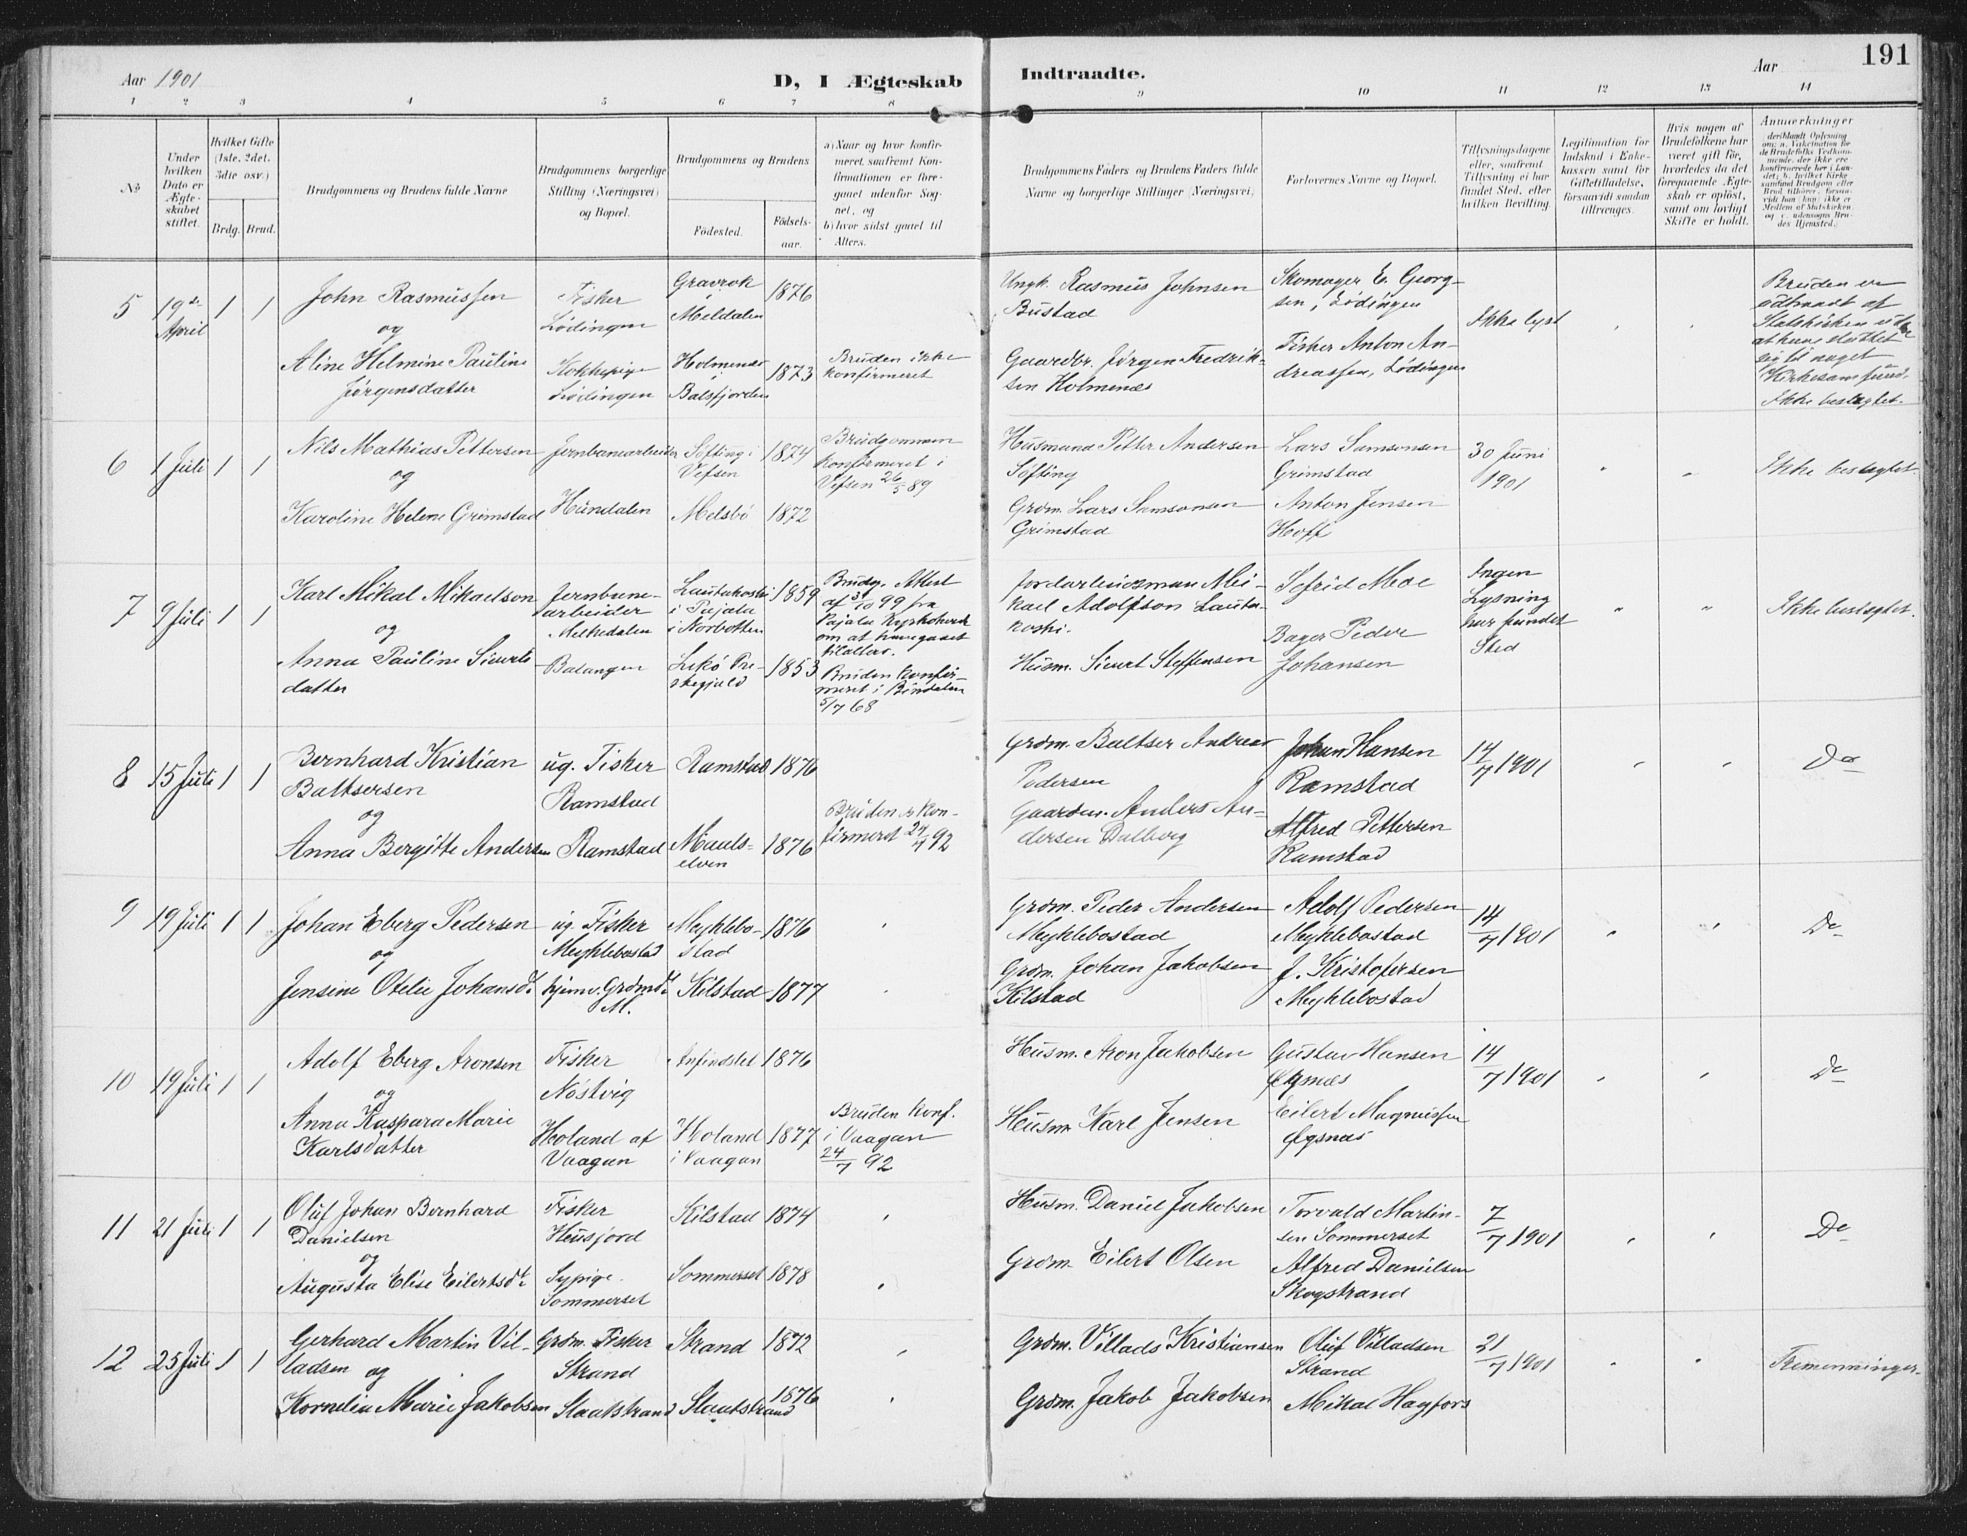 Aar 1901
D, I Ægteskab Indtraadte.
Aar
191
1 2 3 4 5 6 7 8 9 10 11 12 13 14
No
Under hvilken Dato er Ægteskabet stiftet.
Hvilket Gifte (1ste, 2det, 3die osv.)
Brdg. Brud.
Brudgommens og Brudens fulde Navne
Brudgommens borgerlige Stilling (Næringsvei) og Bopæl.
Brudgommens og Brudens
Fødested.
Fødselsaar.
a) Naar og hvor konfirmeret, saafremt Konfirmationen er foregaaet udenfor Sognet, og
b) hvor sidst gaaet til Alters.
Brudgommens Faders og Brudens Faders fulde Navne og borgerlige Stillinger (Næringsvei)
Forlovernes Navne og Bopæl.
Tillysningsdagene eller, saafremt Tillysning ei har fundet Sted, efter hvilken Bevilling.
Legitimation for Indskud i Enkekassen samt for Giftetilladelse, forsaavidt saadan tiltrænges.
Hvis nogen af Brudefolkene har været gift før, hvorledes da det foregaaende Ægteskab er opløst, samt om lovligt Skifte er holdt.
Anmærkninger
5
19de April
1 1
John Rasmussen
og
Aline Helmine Pauline
Jørgensdatter
Fisker
Lødingen
Kokkepige
Lødingen
Gravrok
i
Meldalen
1876
Holmenes
i
Balsfjorden
1873
Bruden ikke
konfirmeret
Ungk. Rasmus Johnsen
Bustad
Gaardbr. Jørgen Fredriksen Holmenæs
Skomager E. Georgsen, Lødingen
Fisker Anton Andreassen, Lødingen
Ikke lyst
Bruden er
udtraadt af
Statskirken uden
at have sluttet
sig til noget
Kirkesamfund.
Ikke beslægtet.
6
1 Juli
1 1
Nils Mathias Pettersen
og
Karoline Helene Grimstad
Jernbanearbeider
Hundalen
Søfting i
Vefsen
1874
Melsbø
1872
Brudgommen
konfirmeret i
Vefsen 26/5 89
Husmand Petter Andersen
Søfting
Grdm. Lars Samsonsen
Grimstad
Lars Samsonsen
Grimstad
Anton Jensen
Hoff
30 Juni
1901
Ikke beslægtet.
7
9 Juli
1 1
Karl Mikal Mikaelson
og
Anna Pauline Sivertsdatter
Jernbanearbeider
Melkedalen
Balangen
Lautakoski
i Pajala
i Norbotten
1859
Lekø Præstegjæld
1853
Brudg. Attest
af 31/10 99 fra
Pajala Kyrkoherde
om at have gaaet
til alters.
Bruden konfirmeret i Bindalen
5/7 68
Jordarbeidsman Meikael Adolfson Lautakoski.
Husm. Sivert Steffensen
Sefrid Moe
Bager Peder
Johansen
Ingen
Lysning
har fundet
Sted
Ikke beslægtet.
8
15 Juli
1 1
Bernhard Kristian
Baltsersen
og
Anna Bergitte Andersen
ug. Fisker
Ramstad
Ramstad
Ramstad
1876
Maals-
elven
1876
Bruden er konfirmeret 24/7 92
Grdm. Baltser Andreas
Pedersen
Gaardm. Anders Andersen Dalberg
Johan Hansen
Ramstad
Alfred Pettersen
Ramstad
14/7 1901
Do
9
19 Juli
1 1
Johan Eberg Pedersen
og
Jensine Otelie Johansdt.
ug. Fisker
Meyklebostad
hjemv. Grdmdt.
M.
Meyklebostad
1876
Kilstad
1877
Grdm. Peder Andersen
Meyklebostad
Grdm. Johan Jakobsen
Kilstad
Adolf Pedersen
Meyklebostad
J. Kristofersen
Meyklebostad
14/7 1901
Do
10
19 Juli
1 1
Adolf Eberg Aronsen
og
Anna Kaspara Marie
Karlsdatter
Fisker
Nøstvig
Holand af
Vaagan
Anfindslet
1876
Holand
i Vaagan
1877
Bruden konf.
i Vaagan
24/7 92
Husm. Aron Jakobsen
Husm. Karl Jensen
Gustav Hansen
Øgsnes
Eilert Magnussen
Øgsnæs
14/7 1901
Do
11
21 Juli
1 1
Oluf Johan Bernhard
Danielsen
og
Augusta Elise Eilertsdt.
Fisker
Husjord
Sypige.
Sommerset
Kilstad
1874
Sommerset
1878
Husm. Daniel Jakobsen
Grdm. Eilert Olsen
Torvald Martinsen Sommerset
Alfred Danielsen
Skogstrand
7/7 1901
Do
12
25 Juli
1 1
Gerhard Martin Villadsen og
Kornelia Marie Jakobsen
Grdm. Fisker
Strand
Slaatstrand
Strand
1872
Slaatstrand
1876
Grdm. Villads Kristiansen
Grdm. Jakob Jakobsen
Oluf Villadsen
Strand
Mikal Hagfors
21/7 1901
Tremenninger.